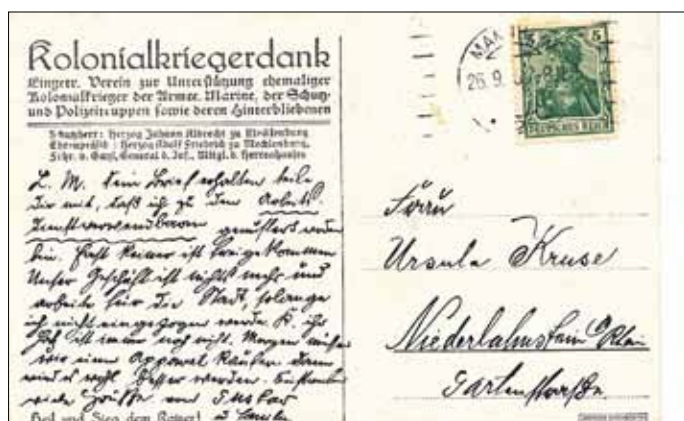 Kolonialkriegerdank
Eingetr. Verein zur Unterstützung ehemaliger
Kolonialkrieger der Armee, Marine, der Schutz-
und Polizeitruppen sowie deren Hinterbliebenen
Schutzherr: Herzog Johann Albrecht zu Mecklenburg
Ehrenpräsid.: Herzog Adolf Friedrich zu Mecklenburg
Frhr. v. Gayl, General d. Inf., Mitgl. d. Herrenhauses
L. M. Dein Brief erhalten teile
Dir mit, daß ich zu den Arbeits-
Dienstverwendbaren gemustert worden
bin. Fast keiner ist freigekommen
Unser Geschäft ist nichts mehr und
arbeite für die Stadt, solange
ich nicht eingezogen werde. K. ihr
ist immer noch nicht. Morgen
wir einen Apparat kaufen dann
wird es wohl besser werden.
viele Grüße von Gustav
Heil und Sieg dem Kaiser!
26.9.
5
DEUTSCHES REICH
Frau
Ursula Kruse
Niederlahnstein a/Rhein
Gartenstraße.